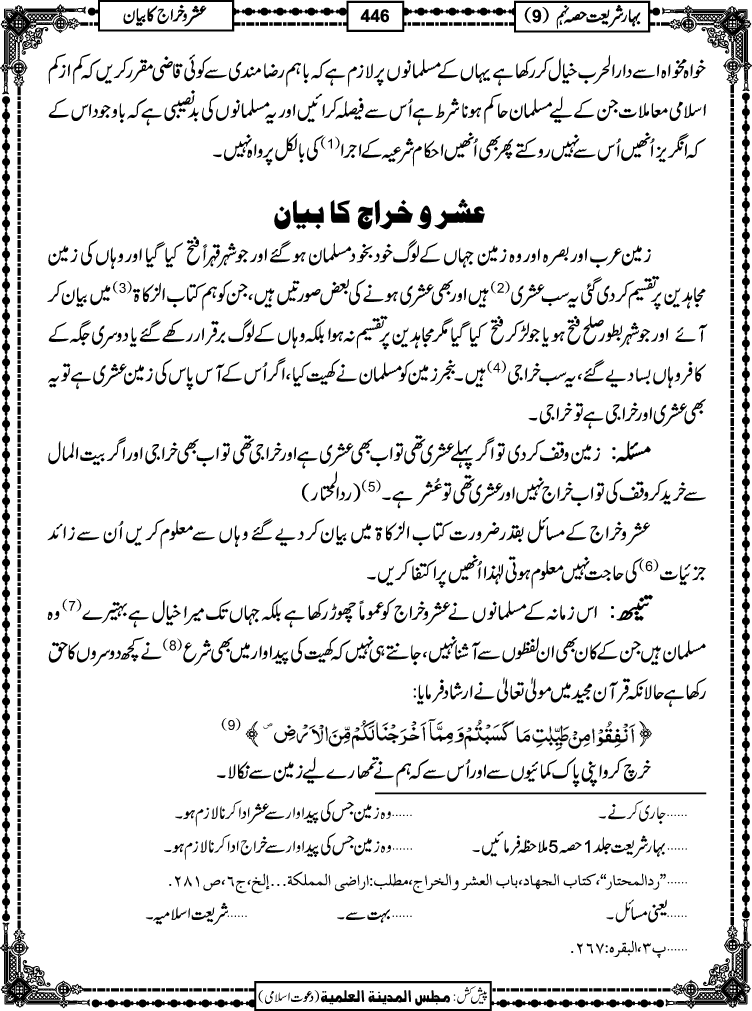 بہارِ شریعت حصہ نہم (9)
446
عشر و خراج کا بیان
خواہ مخواہ اسے دارالحرب خیال کر رکھا ہے یہاں کے مسلمانوں پر لازم ہے کہ باہم رضا مندی سے کوئی قاضی مقرر کریں کہ کم از کم
اسلامی معاملات جن کے لیے مسلمان حاکم ہونا شرط ہے اُس سے فیصلہ کرائیں اور یہ مسلمانوں کی بدنصیبی ہے کہ باوجود اس کے
کہ انگریز اُنھیں اُس سے نہیں روکتے پھر بھی اُنھیں احکام شرعیہ کے اجرا(1) کی بالکل پرواہ نہیں۔
عشر و خراج کا بیان
زمین عرب اور بصرہ اور وہ زمین جہاں کے لوگ خود بخود مسلمان ہو گئے اور جو شہر قہراً فتح کیا گیا اور وہاں کی زمین
مجاہدین پر تقسیم کر دی گئی یہ سب عشری(2) ہیں اور بھی عشری ہونے کی بعض صورتیں ہیں، جن کو ہم کتاب الزکاۃ(3) میں بیان کر
آئے اور جو شہر بطور صلح فتح ہو یا جو لڑ کر فتح کیا گیا مگر مجاہدین پر تقسیم نہ ہوا بلکہ وہاں کے لوگ برقرار رکھے گئے یا دوسری جگہ کے
کافر وہاں بسا دیے گئے، یہ سب خراجی(4) ہیں۔ بنجر زمین کو مسلمان نے کھیت کیا، اگر اُس کے آس پاس کی زمین عشری ہے تو یہ
بھی عشری اور خراجی ہے تو خراجی۔
مسئلہ: زمین وقف کر دی تو اگر پہلے عشری تھی تو اب بھی عشری ہے اور خراجی تھی تو اب بھی خراجی اور اگر بیت المال
سے خرید کر وقف کی تو اب خراج نہیں اور عشری تھی تو عُشر ہے۔(5) (ردالمحتار)
عشر و خراج کے مسائل بقدر ضرورت کتاب الزکاۃ میں بیان کر دیے گئے وہاں سے معلوم کریں اُن سے زائد
جزئیات(6) کی حاجت نہیں معلوم ہوتی لہٰذا اُنھیں پر اکتفا کریں۔
تنبیہ: اس زمانہ کے مسلمانوں نے عشر و خراج کو عموماً چھوڑ رکھا ہے بلکہ جہاں تک میرا خیال ہے بہتیرے(7) وہ
مسلمان ہیں جن کے کان بھی ان لفظوں سے آشنا نہیں، جانتے ہی نہیں کہ کھیت کی پیداوار میں بھی شرع(8) نے کچھ دوسروں کا حق
رکھا ہے حالانکہ قرآن مجید میں مولیٰ تعالیٰ نے ارشاد فرمایا:
﴿ اَنْفِقُوْا مِنْ طَیِّبٰتِ مَا كَسَبْتُمْ وَ مِمَّاۤ اَخْرَجْنَا لَكُمْ مِّنَ الْاَرْضِ ۪ ﴾(9)
خرچ کرو اپنی پاک کمائیوں سے اور اُس سے کہ ہم نے تمھارے لیے زمین سے نکالا۔
......جاری کرنے۔ ......وہ زمین جس کی پیداوار سے عشر ادا کرنا لازم ہو۔
......بہار شریعت جلد 1 حصہ 5 ملاحظہ فرمائیں۔ ......وہ زمین جس کی پیداوار سے خراج ادا کرنا لازم ہو۔
......”ردالمحتار“، كتاب الجهاد، باب العشر والخراج، مطلب: اراضى المملكة...إلخ، ج٦، ص٢٨١.
......یعنی مسائل۔ ......بہت سے۔ ......شریعت اسلامیہ۔
......پ٣، البقرہ: ٢٦٧.
پیش کش: مجلس المدینة العلمیة (دعوت اسلامی)